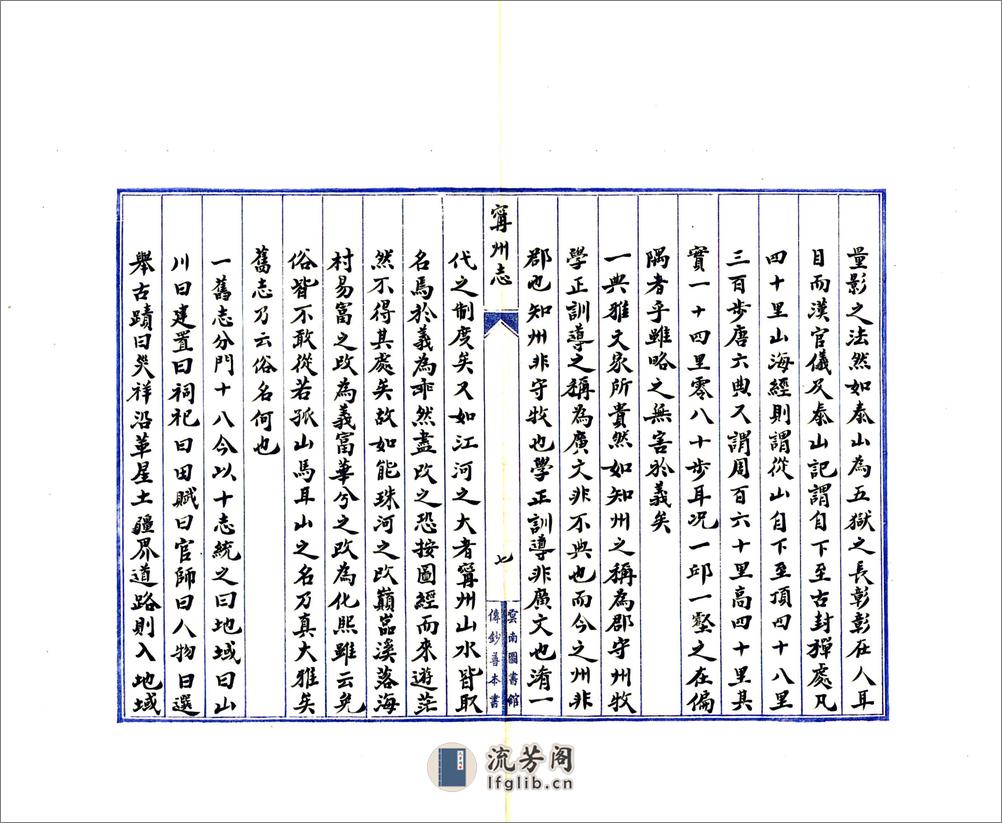 量影之法然如泰山為五獄之長彰彰在人耳
目而漢官儀及泰山記謂自下至古封禪處凡
四十里山海經則謂從山自下至頂四十八里
三百步唐六典又謂周百六十里高四十里其
實一十四里零八十步耳况一邱一壑之在偏
隅者乎雖略之無害於義矣
一典雅文家所貴然如知州之稱為郡守州牧
學正訓導之稱為廣文非不典也而今之州非
郡也知州非守牧也學正訓導非廣文也淆一
寗州志
七
雲南圖書館
傳鈔善本書
代之制度矣又如江河之大者寗州山水皆取
名馬於義為乖然盡改之恐按圖經而來遊茫
然不得其處矣故如能珠河之改巔嵓溪落海
村易富之改為義富華兮之改為化熙雖云免
俗皆不敢從若孤山馬耳山之名乃真大雅矣
舊志乃云俗名何也
一舊志分門十八今以十志統之曰地域曰山
川曰建置曰祠祀曰田賦曰官師曰人物曰選
舉古蹟曰災祥沿革星土疆界道路則入地域
流芳阁
lfglib.cn